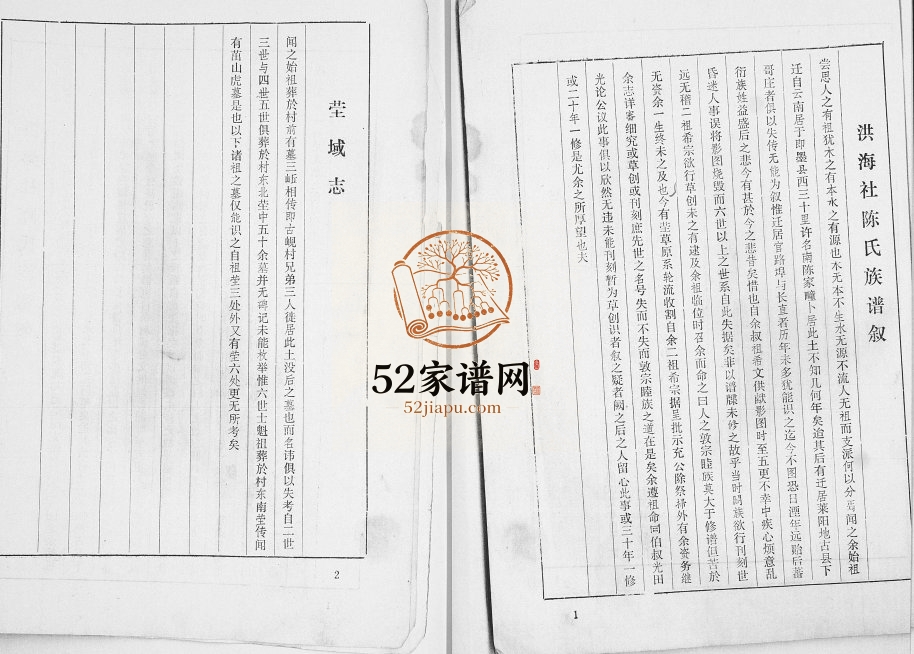 洪海社陈氏族谱叙
尝思人之有祖犹木之有本水之有源也木无本不生水无源不流人无祖而支派何以分焉闻之余始祖
迁自云南居于即墨县西三十里许名南陈家疃卜居此土不知几何年矣逾其后有迁居莱阳地占县下
哥庄者俱以失传无能为叙惟迁居官路埠与长直者历年未多犹能识之迄今不图恐日湮年远贻后蕃
衍族姓益盛后之悲今有甚於今之悲昔矣惜也自余叔祖希文供献影图时至五更不幸中疾心烦意乱
昏迷人事误将影图烧毁而六世以上之世系自此失据矣非以谱牒未修之故乎当时阖族欲行刊刻世
远无稽二祖希宗欲行草创未之有逮及余祖临位时召余而命之曰人之敦宗睦族莫大于修谱但苦於
无资余一生终未之及也今有茔草原系轮流收割自余二祖希宗据呈批示充公除祭扫外有余资务继
余志详审细究或草创或刊刻庶先世之名号失而不失而敦宗睦族之道在是矣余遵祖命同伯叔光田
光论公议此事俱以欣然无违未能刊刻暂为草创识者叙之疑者阙之后之人留心此事或三十年一修
或二十年一修是尤余之所厚望也夫
1
茔域志
闻之始祖葬於村前有墓三岖相传即古岘村兄弟三人徙居此土没后之墓也而名讳俱以失考自二世
三世与四世五世俱葬於村东北茔中五十余墓并无碑记未能枚举惟六世士魁祖葬於村东南茔传闻
有茁山虎墓是也以下诸祖之墓仅能识之自祖茔三处外又有茔六处更无所考矣
2
52家谱网
52jiapu.com